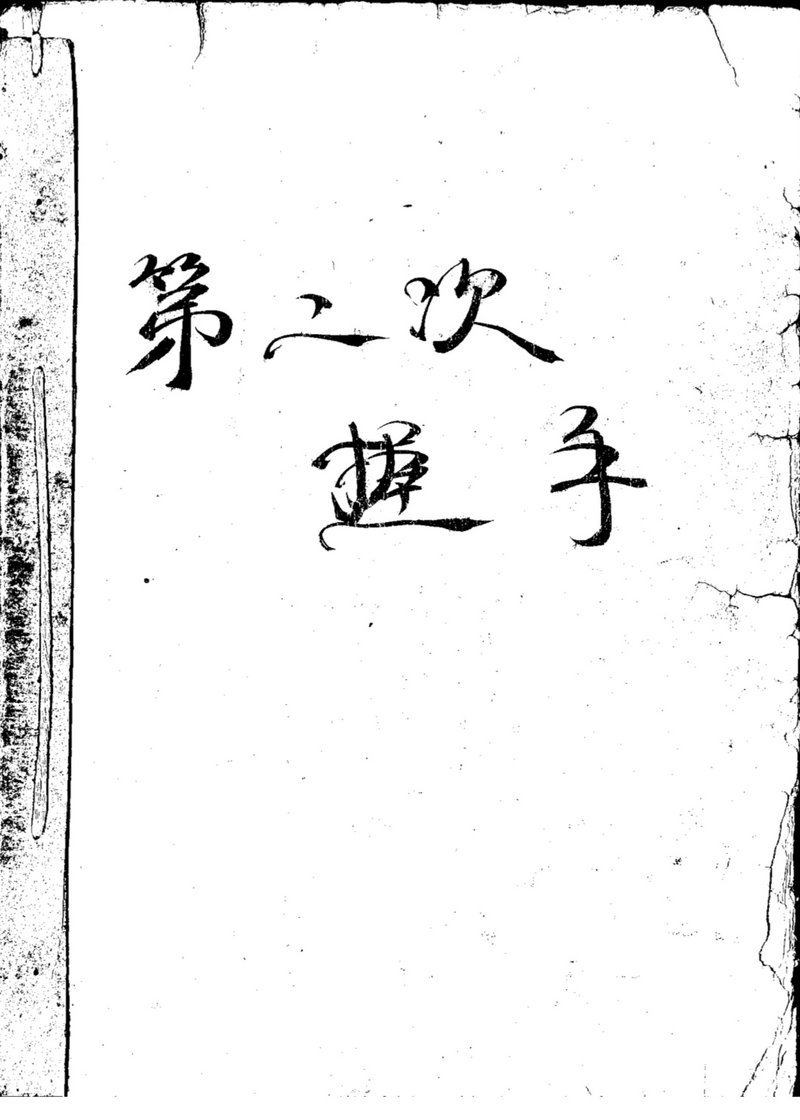 第二次
握手